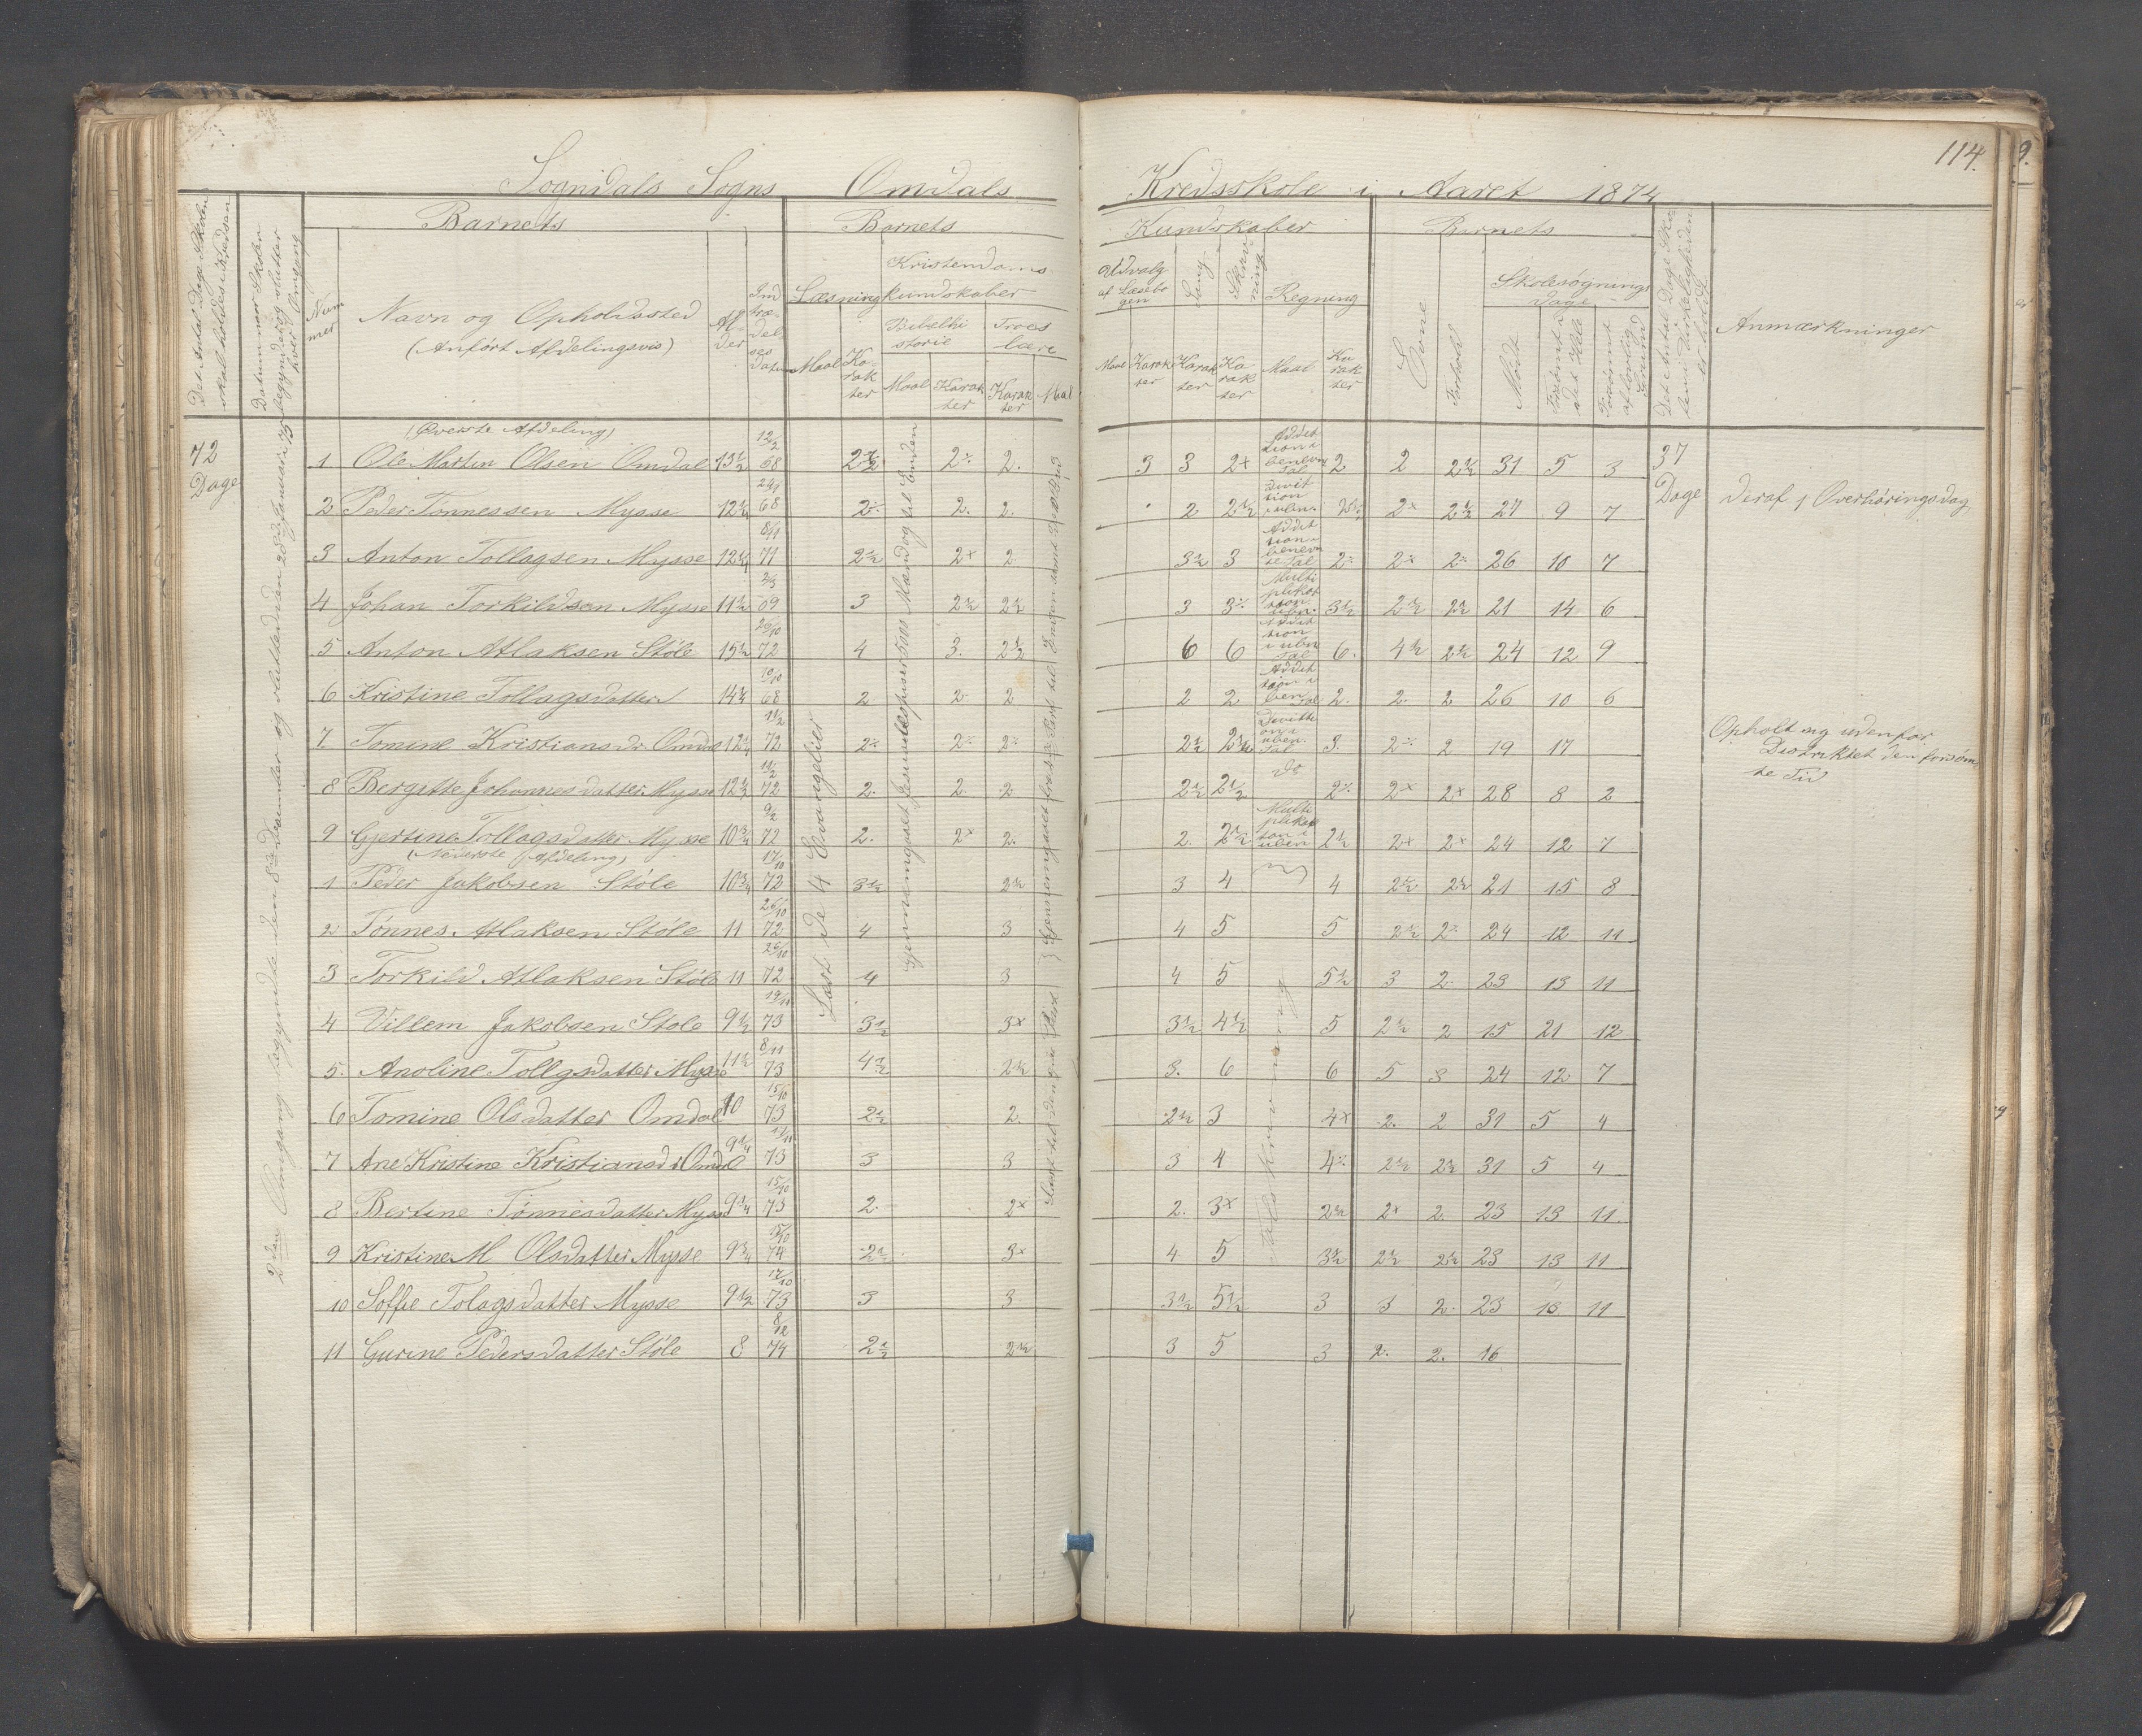 114.
Sogndals Sogns Omdals Kredsskole i Aaret 1874
Det Antal Dage Skolen skal holdes i Kredsen
Datum naar Skolen begynder og slutter hver Omgang
Barnets
Nummer
Navn og Opholdssted
(Anført Afdelingsvis)
Alder
Indtrædelses datum
Barnets Kundskaber
Læsning
Maal Karakter
Kristendomskundskaber
Bibelhistorie
Maal Karakter
Troeslære
Karakter Maal
Udvalg af Læsebogen
Maal Karakter
Sang
Karakter
Skrivning
Karakter
Regning
Maal Karakter
Barnets
Evne
Forhold
Skolesøgnings Dage
Mødt
Forsømt det Hele
Forsømt af lovlig Grund
Det Antal Dage Skolen i Virkeligheden er holdt
Anmærkninger
72 Dage
(Øverste Afdeling)
1 Ole Martin Olsen Omdal 13½ 12/2 68 2½ 2 2. 3 3 2x Addition i benevn Tal 2 2 2½ 31 5 3
37 Dage
deraf 1 Overhøringsdag
2 Peder Tønnessen Mysse 12¼ 29/1 68 2 2. 2. 2 2½ 2x 2½ 27 9 7
3 Anton Tollagsen Mysse 12¼ 8/11 71 2½ 2x 2 3½ 3 Addition i benevnte Tal 2 2 2 26 10 7
4 Johan Torkildsen Mysse 11½ 69 3 2½ 2½ 3 3 Multiplikation i ubn. 3½ 2½ 2½ 21 14 6
5 Anton Atlaksen Støle 15½ 26/10 72 4 3. 2½ 6 6 Addition i ubn Tal 6. 4½ 2½ 24 12 9
6 Kristine Tollagsdatter 14¼ 19/10 68 2 2 2 2 2 Addition i ben Tal 2. 2. 2 26 10 6
7 Tomine Kristiansdr Omdal 12½ 11/2 72 2 2 2 2½ 2½ 3. 2 2 19 17
Opholt sig udenfor Distriktet den forsømte Tid
8 Bergitte Johannesdatter Mysse 12½ 11/2 72 2. 2. 2 2½ 2½ do 2 2x 2x 28 8 2
9 Gjertine Tollagsdatter Mysse 10¾ 9/2 72 2. 2x 2. 2. 2½ Multiplikation i uben 2½ 2x 2x 24 12 7
(Nederste Afdeling)
1 Peder Jakobsen Støle 10¾ 17/10 72 3½ 2½ 3 4 4 2½ 2½ 21 15 8
2 Tønnes Atlaksen Støle 11 26/10 72 4 3 4 5 5 2½ 2 24 12 11
3 Torkild Atlaksen Støle 11 26/10 72 4 3 4 5 5½ 3 2. 23 13 11
4 Villem Jakobsen Støle 9½ 19/11 73 3½ 3x 3½ 4½ 5 2½ 2 15 21 12
5. Anoline Tollgsdatter Mysse 11½ 8/11 73 4½ 2½ 3. 6 6 5 3 24 12 7
6 Tomine Olsdatter Omdal 10 15/10 73 2½ 2. 2½ 3 4x 2. 2 31 5 4
7 Ane Kristine Kristiansdr Omdal 9¼ 17/11 73 3 3 3 4 4 2½ 2½ 31 5 4
8 Bertine Tønnesdatter Mysse 9¼ 15/10 73 2. 2x 2. 3x 2½ 2x 2. 23 13 11
9 Kristine M Olsdatter Mysse 9¾ 15/10 74 2½ 3x 4 5 3½ 2½ 2½ 23 13 11
10 Soffie Tolagsdatter Mysse 9½ 17/10 73 3 3 3½ 5½ 3 3 2. 23 13 11
11 Gurine Pedersdatter Støle 8 8/12 74 2½ 2½ 3 5 3 2. 2. 16
2den Omgang begyndte den
Læst i de 4 Evangelier
Gjennemgaaet Jesus bespiser 5000 Mænd og til Enden